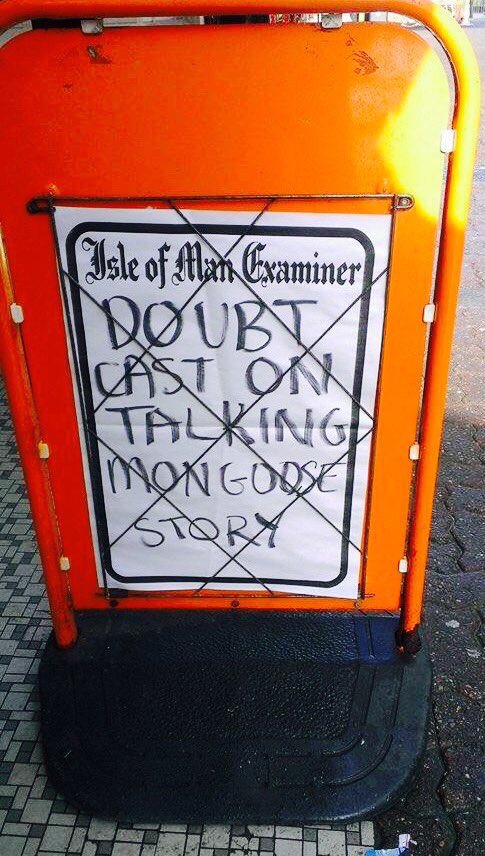 Isle of Man Examiner
DOUBT
CAST ON
TALKING
MONGOOSE
STORY